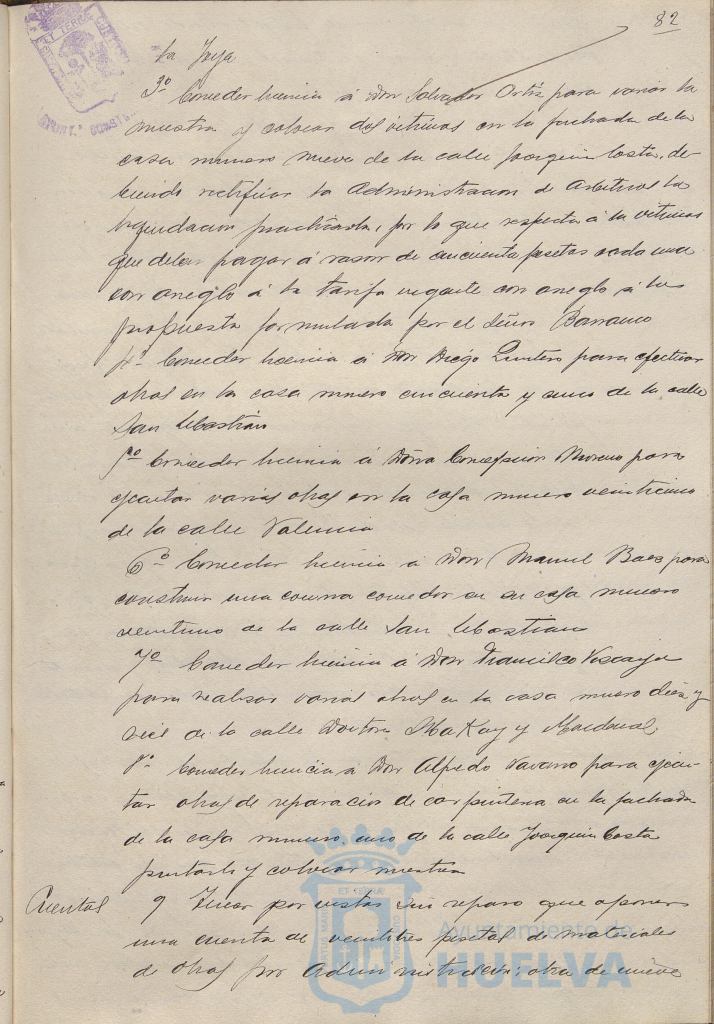 82
la Joya
3º Conceder licencia á Don Salvador Ortiz para variar la
muestra y colocar dos vitrinas en la fachada de la
casa numero nueve de la calle Joaquin Costa, de-
biendo rectificar la Administracion de Arbitrios la
liquidacion practicada, por lo que respecta á la vitrinas
que deben pagar á rason de cincuenta pesetas cada una
con arreglo á la tarifa vigente con arreglo á la
propuesta formulada por el Señor Barranco
4º Conceder licencia á Don Diego Quintero para efectuar
obras en la casa numero cincuenta y uno de la calle
San Sebastián
5º Conceder licencia á Doña Concepcion Moreno para
ejecutar varias obras en la casa numero veinticinco
de la calle Valencia
6º Conceder licencia á Don Manuel Baez para
construir una cocina comedor en su casa numero
veintiuno de la calle San Sebastian
7º Conceder licencia á Don Francisco Vizcaya
para realizar varias obras en la casa numero diez y
seis de la calle Doctor MaKay y Macdonal.
8º Conceder licencia á Don Alfredo Navarro para ejecu-
tar obras de reparacion de carpinteria en la fachada
de la casa numero uno de la calle Joaquin Costa
pintarla y colocar muestra
Cuentas 9 Fueron por vistas sin reparo que oponer
una cuenta de veintitres pesetas de materiales
de obras por Administracion; otra de nueve
Ayuntamiento de
HUELVA